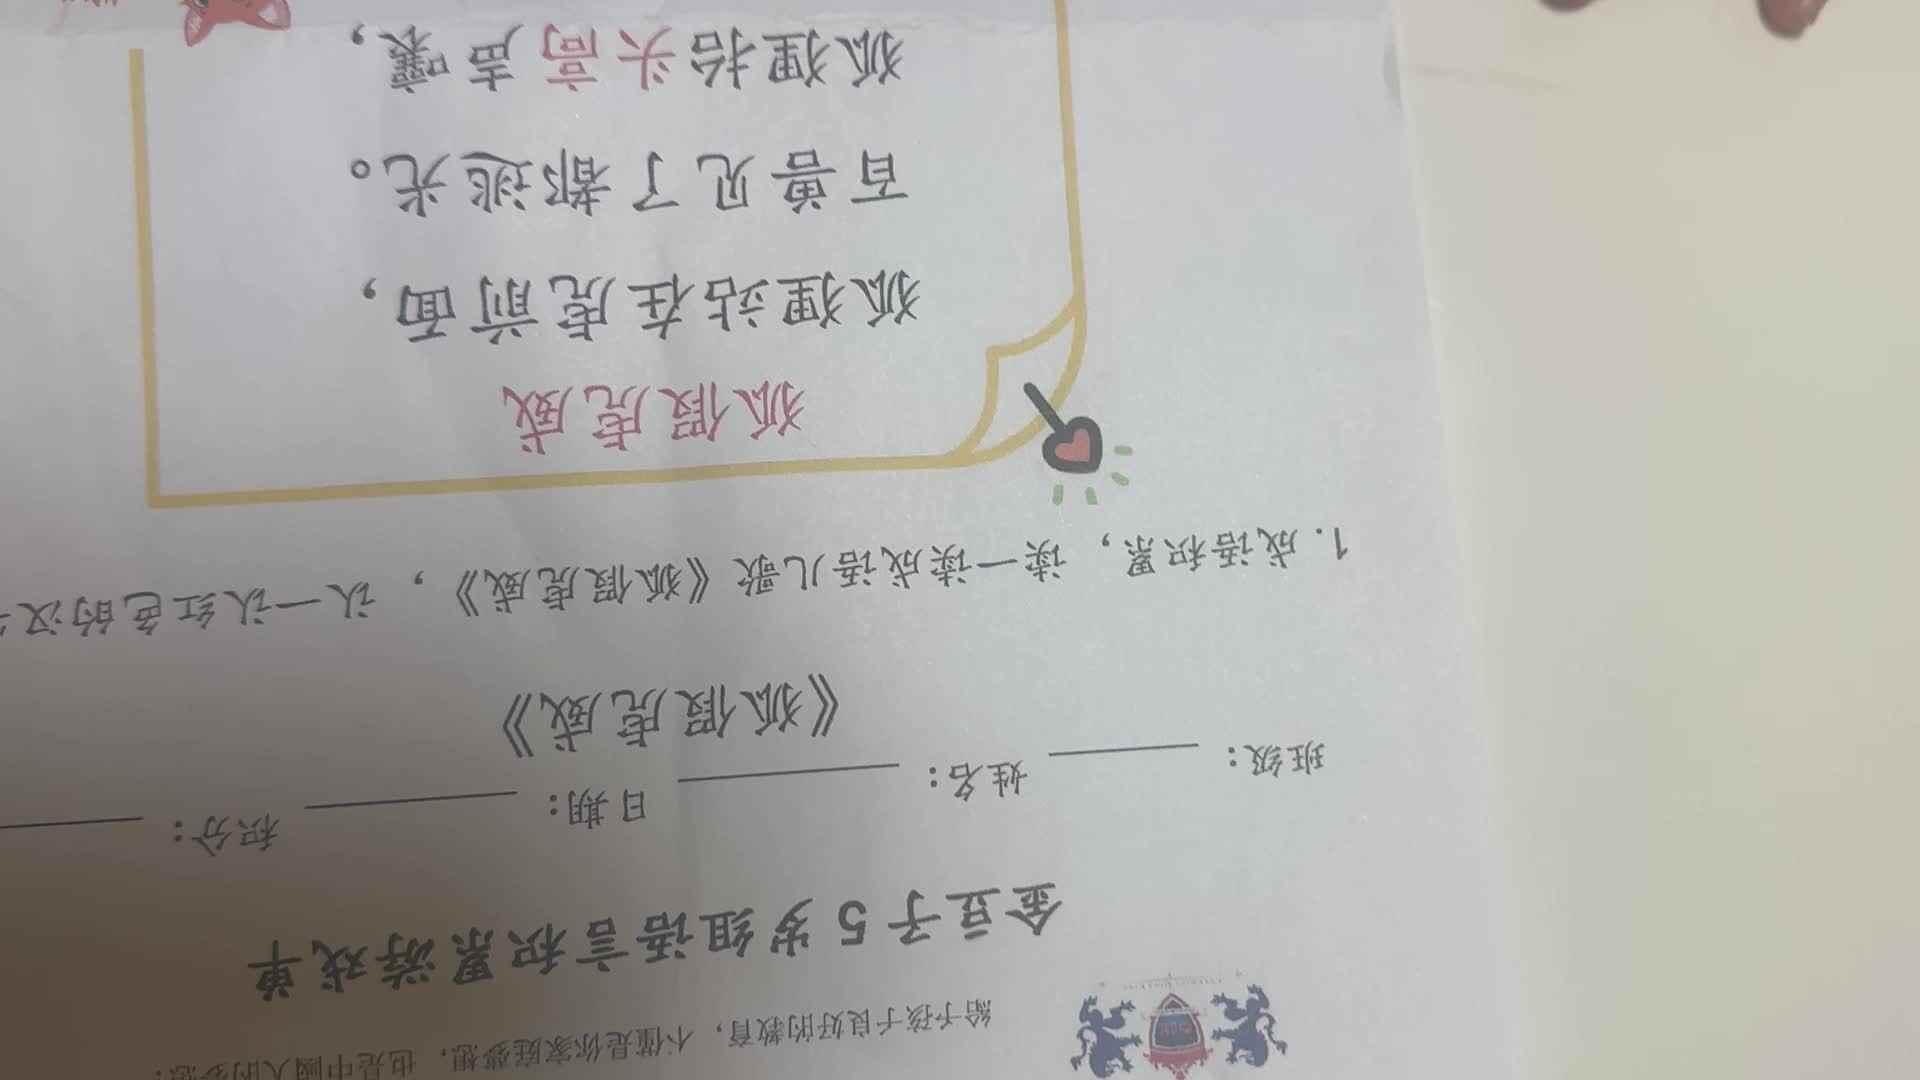 給予孩子良好的教育，不僅是你家庭夢想，也是中國人的夢想
金豆子5岁组语言积累游戏单
班级： 姓名： 日期： 积分：
《狐假虎威》
1. 成语积累，读一读成语儿歌《狐假虎威》，认一认红色的汉
狐假虎威
狐狸站在虎前面，
百兽见了都逃光。
狐狸抬头高声嚷，